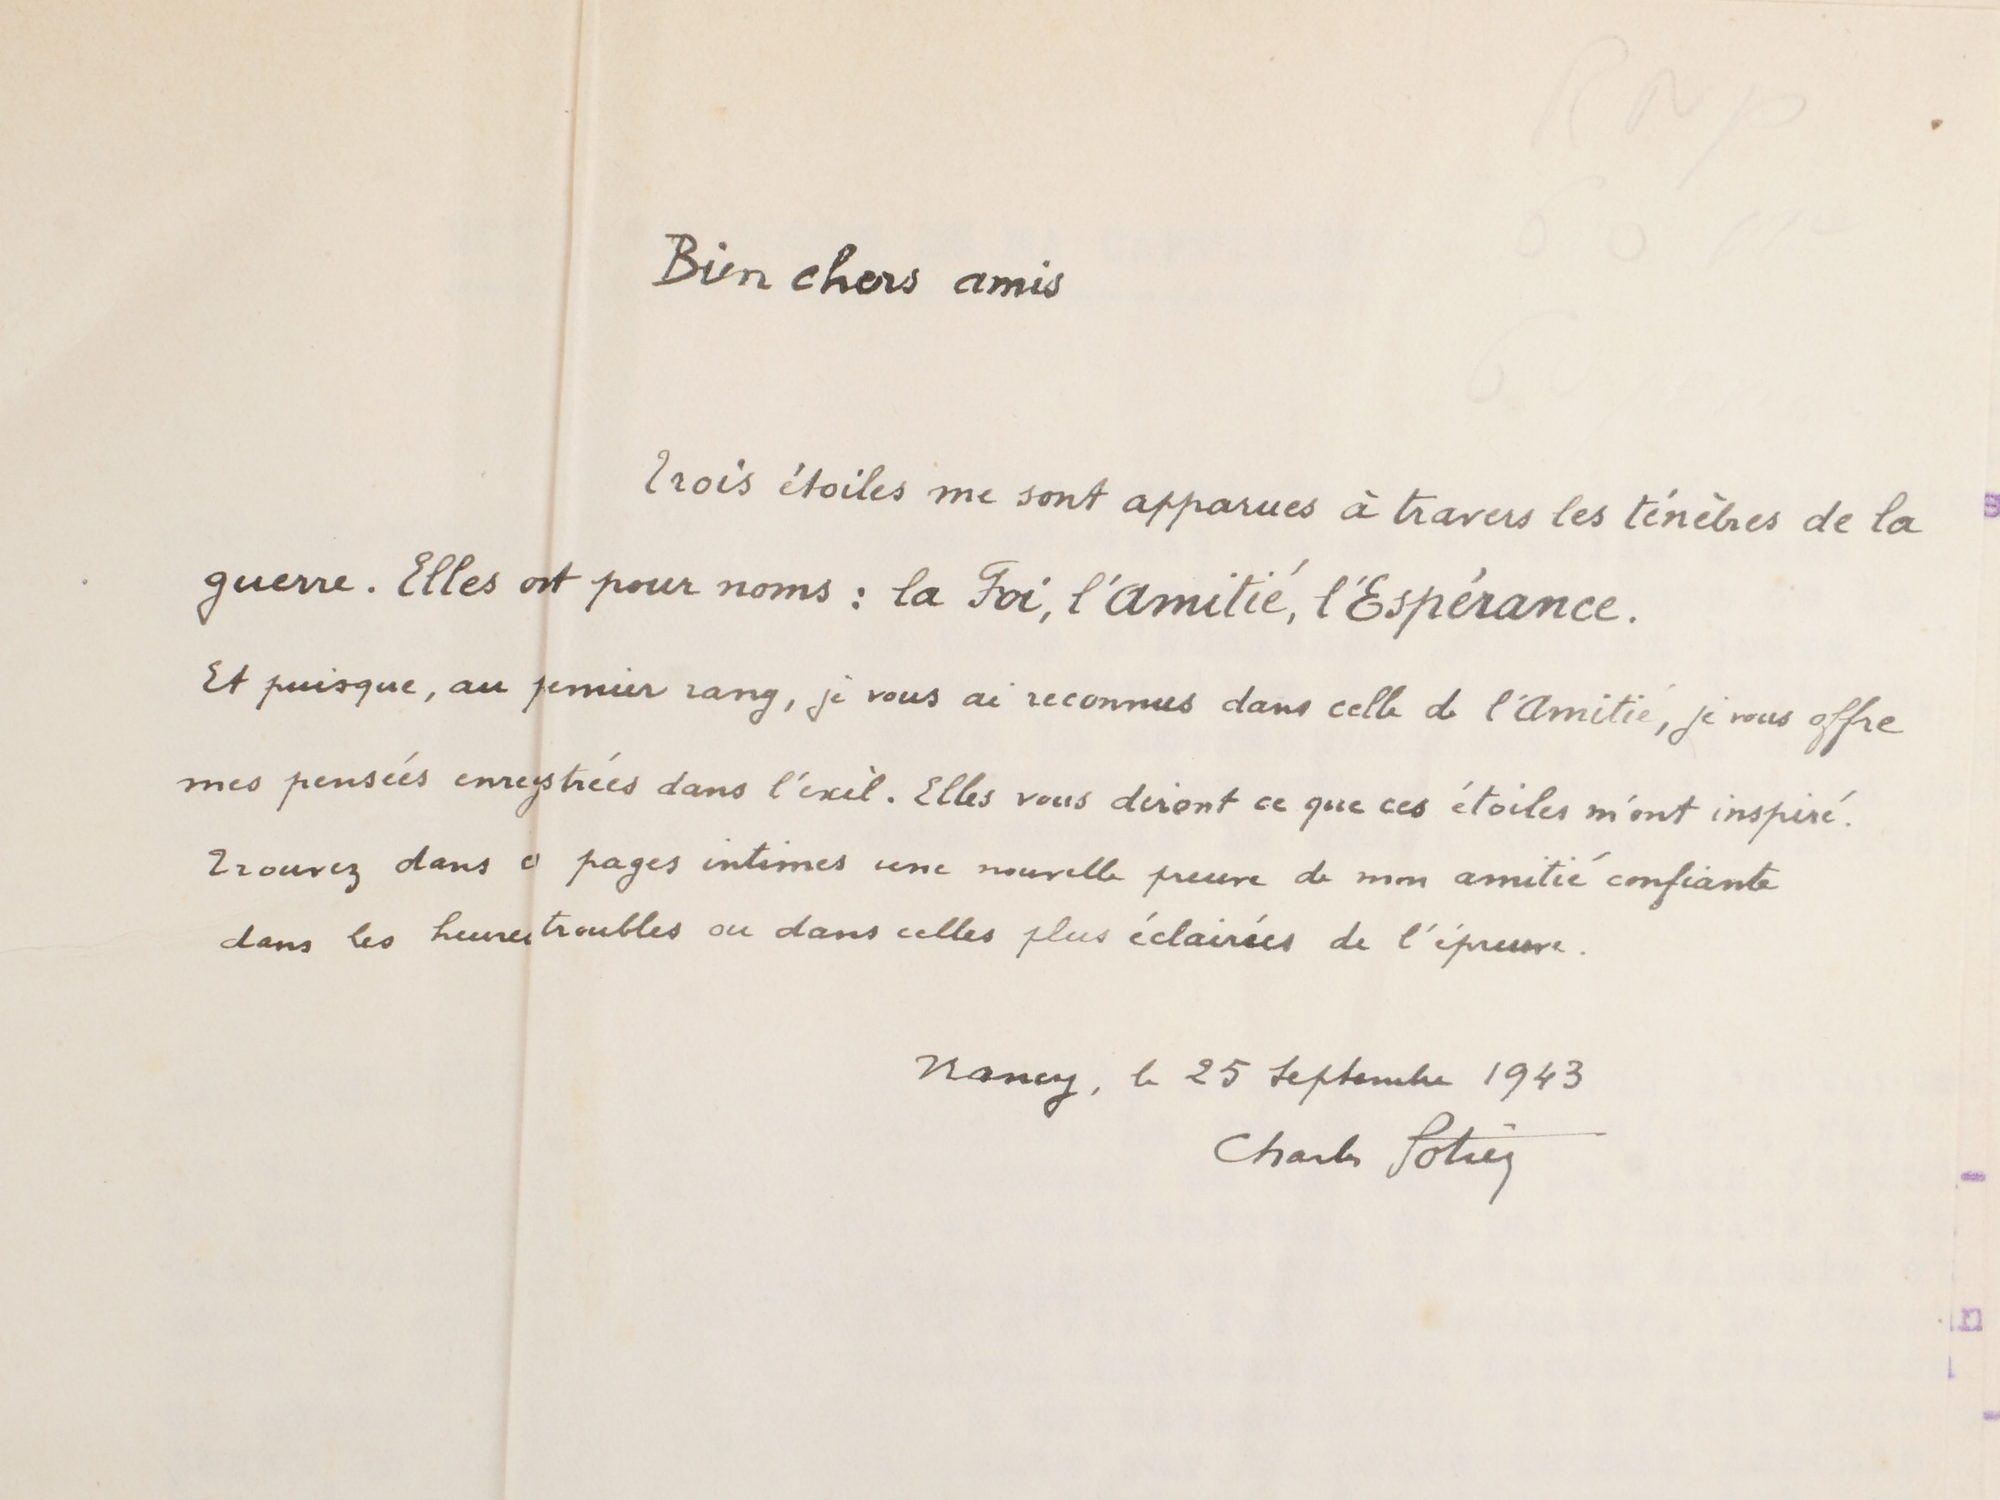 Bien chers amis
Trois étoiles me sont apparues à travers les ténèbres de la
guerre. Elles ont pour noms : la Foi, l'Amitié, l'Espérance.
Et puisque, au premier rang, je vous ai reconnus dans celle de l'Amitié, je vous offre
mes pensées enregistrées dans l'exil. Elles vous diront ce que ces étoiles m'ont inspiré.
Trouvez dans pages intimes une nouvelle preuve de mon amitié confiante
dans les heures troubles ou dans celles plus éclairées de l'épreuve.
Nancy, le 25 Septembre 1943
Charles